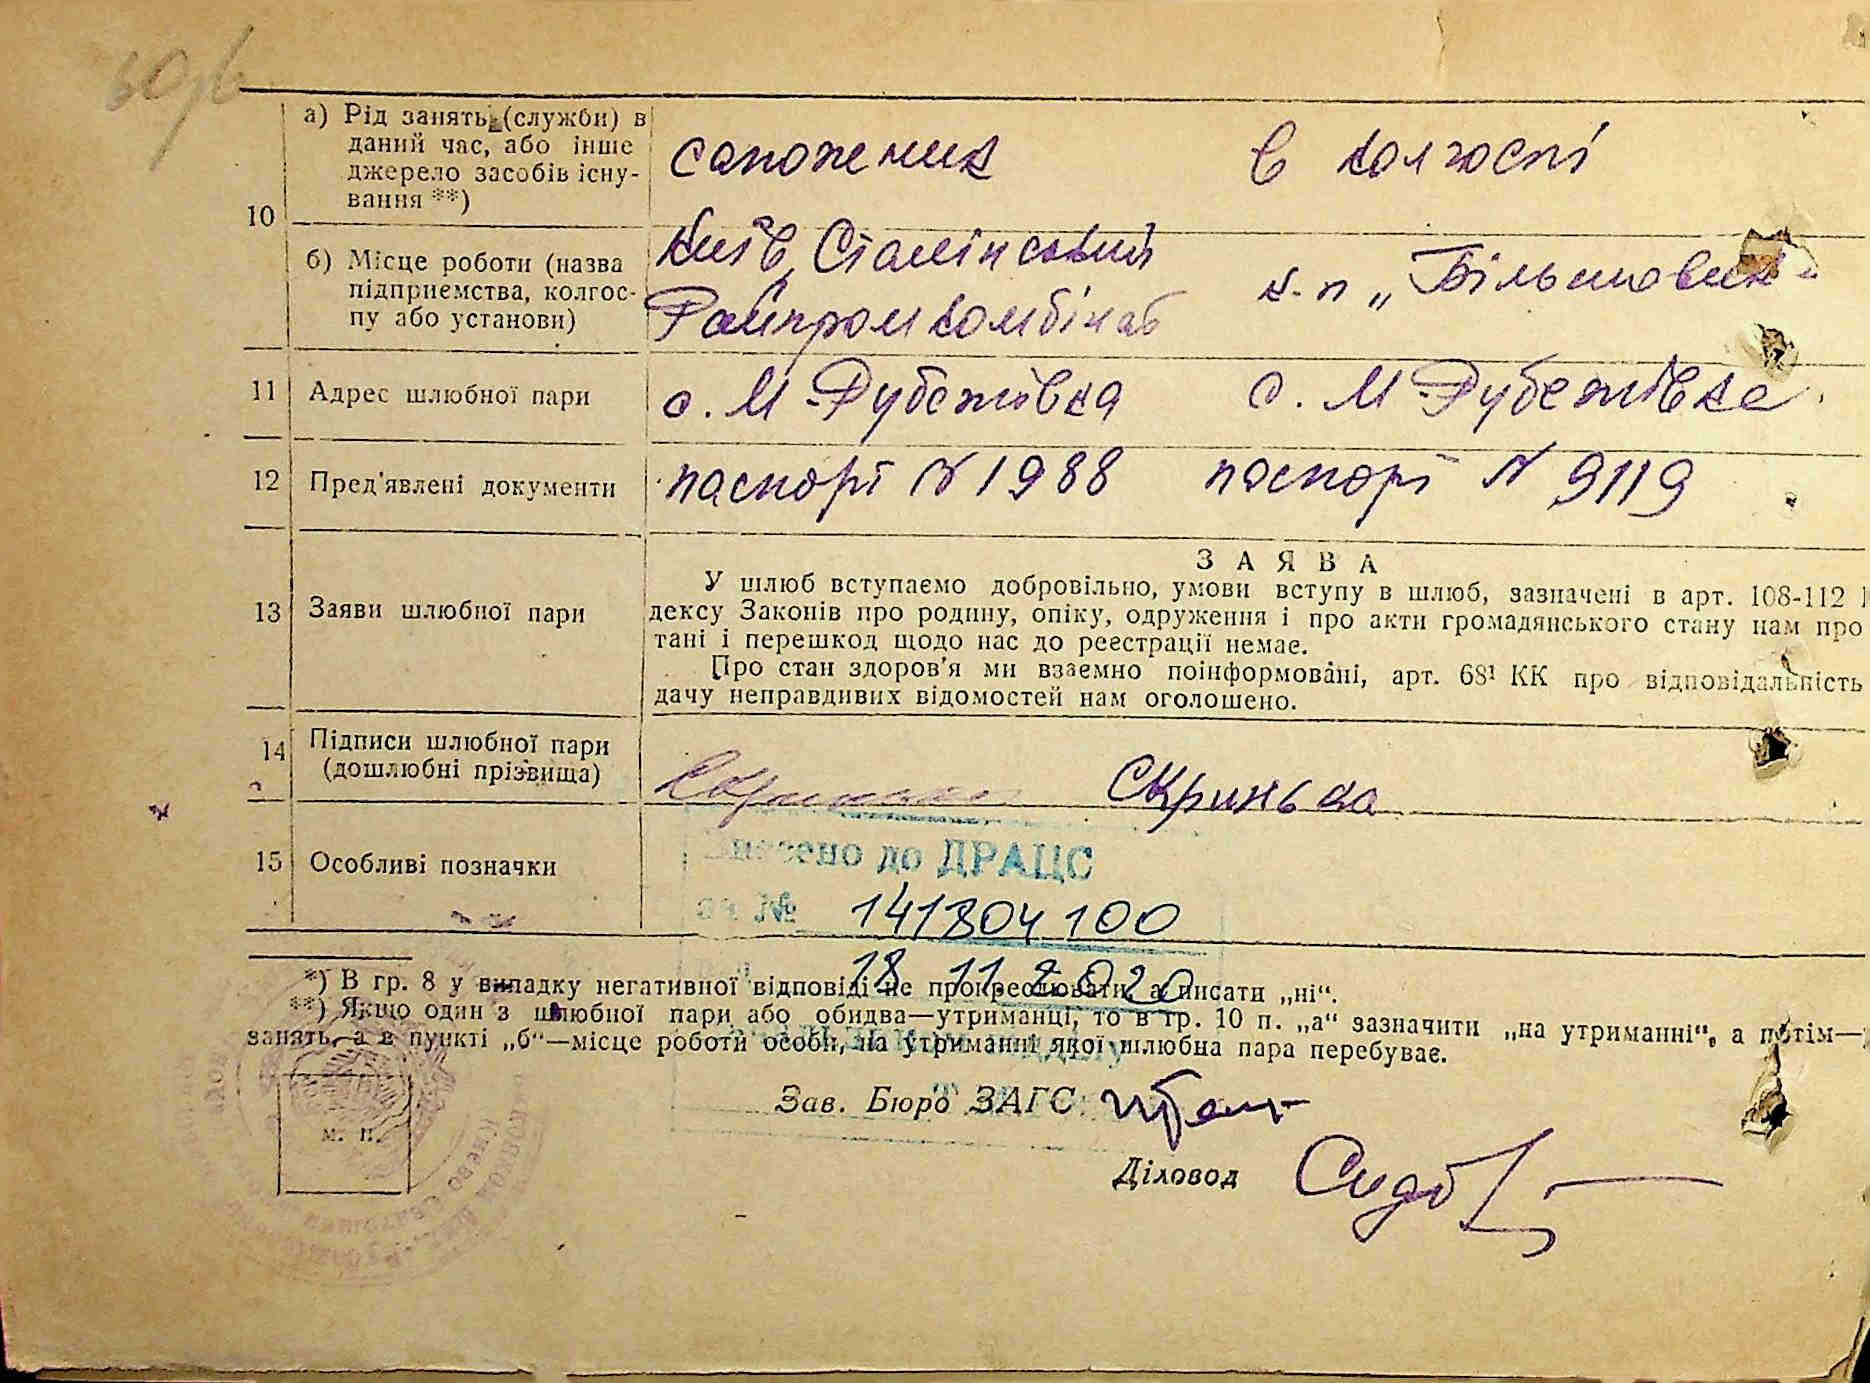 а) Рід занять (служби) в
даний час, або інше
джерело засобів існу-
вання **)
сапожник в колгоспі
10
б) Місце роботи (назва
підприємства, колгос-
пу або установи)
Київ, Сталінський
Райпромкомбінат
к-п „Більшовик"
11 Адрес шлюбної пари с. М-Рубежівка с. М-Рубежівка
12 Пред'явлені документи паспорт N 1988 паспорт N 9119
13 Заяви шлюбної пари
ЗАЯВА
У шлюб вступаємо добровільно, умови вступу в шлюб, зазначені в арт. 108-112
дексу Законів про родину, опіку, одруження і про акти громадянського стану нам про
тані і перешкод щодо нас до реєстрації немає.
Про стан здоров'я ми взаємно поінформовані, арт. 68¹ КК про відповідальність
дачу неправдивих відомостей нам оголошено.
14 Підписи шлюбної пари
(дошлюбні прізвища)
Скринька
15 Особливі позначки
Внесено до ДРАЦС
за № 141804100
18 11.2020
*) В гр. 8 у випадку негативної відповіді не прокреслювати, а писати „ні“.
**) Якщо один з шлюбної пари або обидва—утриманці, то в гр. 10 п. „а“ зазначити „на утриманні“, а потім—
занять, а в пункті „б“—місце роботи особи, на утриманні якої шлюбна пара перебуває.
Зав. Бюро ЗАГС
м. п.
Діловод